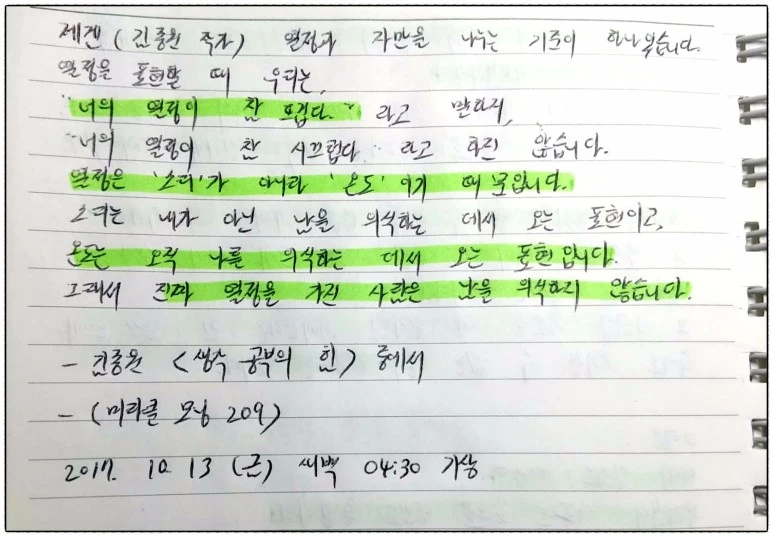 제겐 (김종원 작가) 열정과 자만을 나누는 기준이 하나 있습니다.
열정을 표현할 때 우리는,
"너의 열정이 참 뜨겁다." 라고 말하지,
"너의 열정이 참 시끄럽다" 라고 하진 않습니다.
열정은 '소리'가 아니라 '온도'이기 때문입니다.
소리는 내가 아닌 남을 의식하는 데서 오는 표현이고,
온도는 오직 나를 의식하는 데서 오는 표현입니다.
그래서 진짜 열정을 가진 사람은 남을 의식하지 않습니다.
- 김종원 <생각 공부의 힘> 중에서
- (미라클 모닝 209)
2017. 10. 13 (금) 새벽 04:30 기상